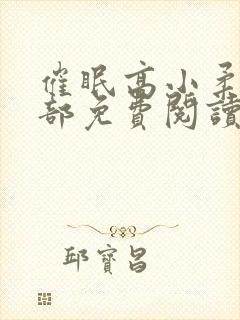 催眠高小柔
部免費閱讀
邱寶昌